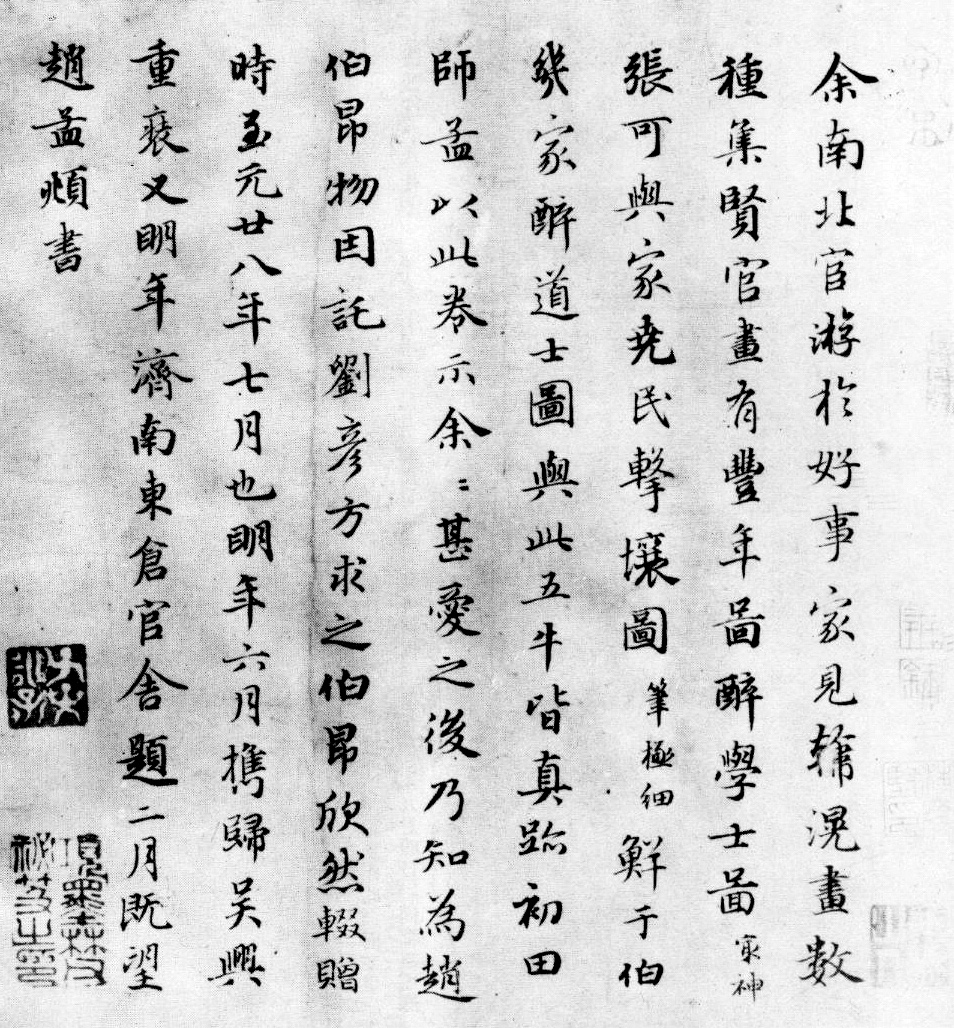 余南北官游於好事家見韓滉畫數
種集賢官畫有豐年啚醉學士啚 㝡神
張可與家尭民擊壤圖 筆極細 鮮于伯
㡬家醉道士圖與此五牛皆真跡初田
師孟以此卷示余〻甚愛之後乃知為趙
伯昂物因託劉彦方求之伯昂欣然輟贈
時至元廿八年七月也明年六月攜歸吳興
重裝又明年濟南東倉官舍題二月既望
趙孟頫書